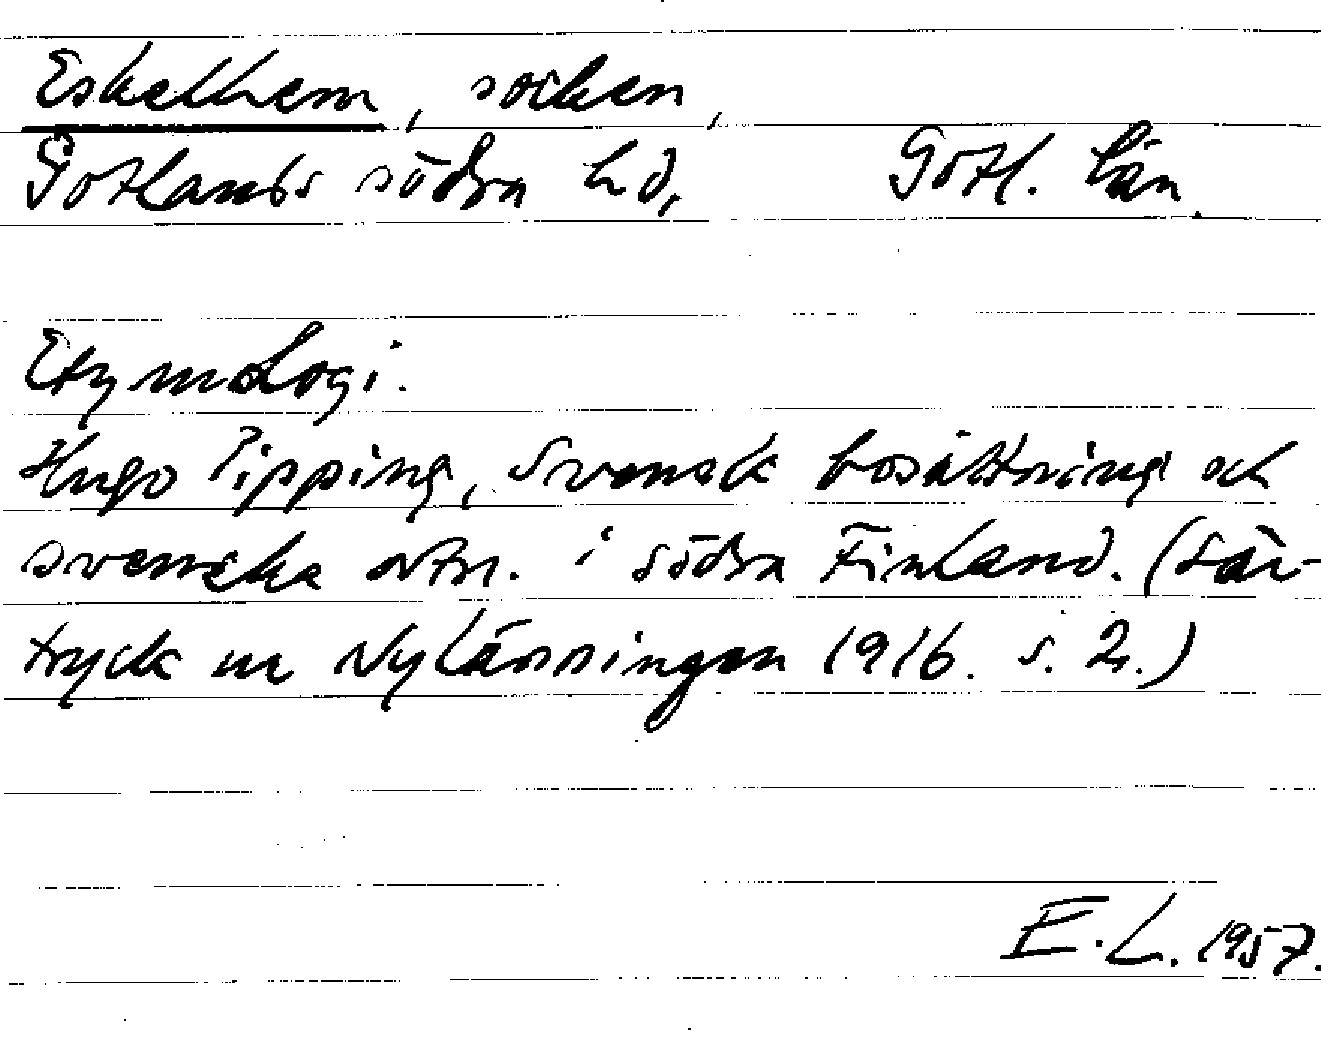 Eskelhem, socken,
Gotlands södra hd, Gotl. län.
Etymologi.
Hugo Pipping, Svensk bosättning och
svenska ortn. i södra Finland. (Sär-
tryck ur Nylänningen 1916. s. 2.)
E.L. 1957.